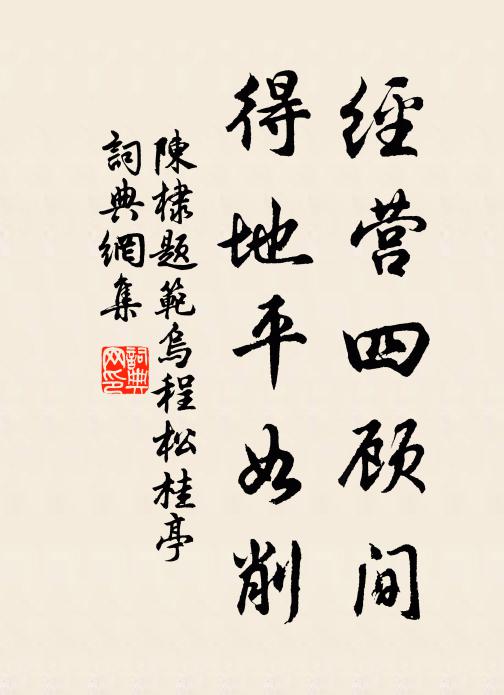 經营四顾间
得地平如削
陳棣题範烏程松桂亭
詞典網集
詞典网印